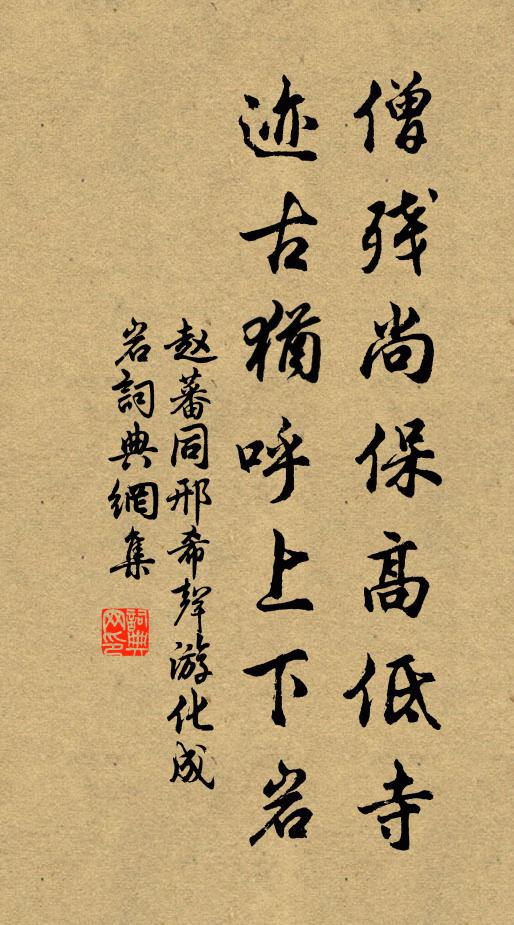 僧残尚保高低寺
迹古犹呼上下岩
赵蕃同邢希聲游化成
岩詞典網集
詞典
网印